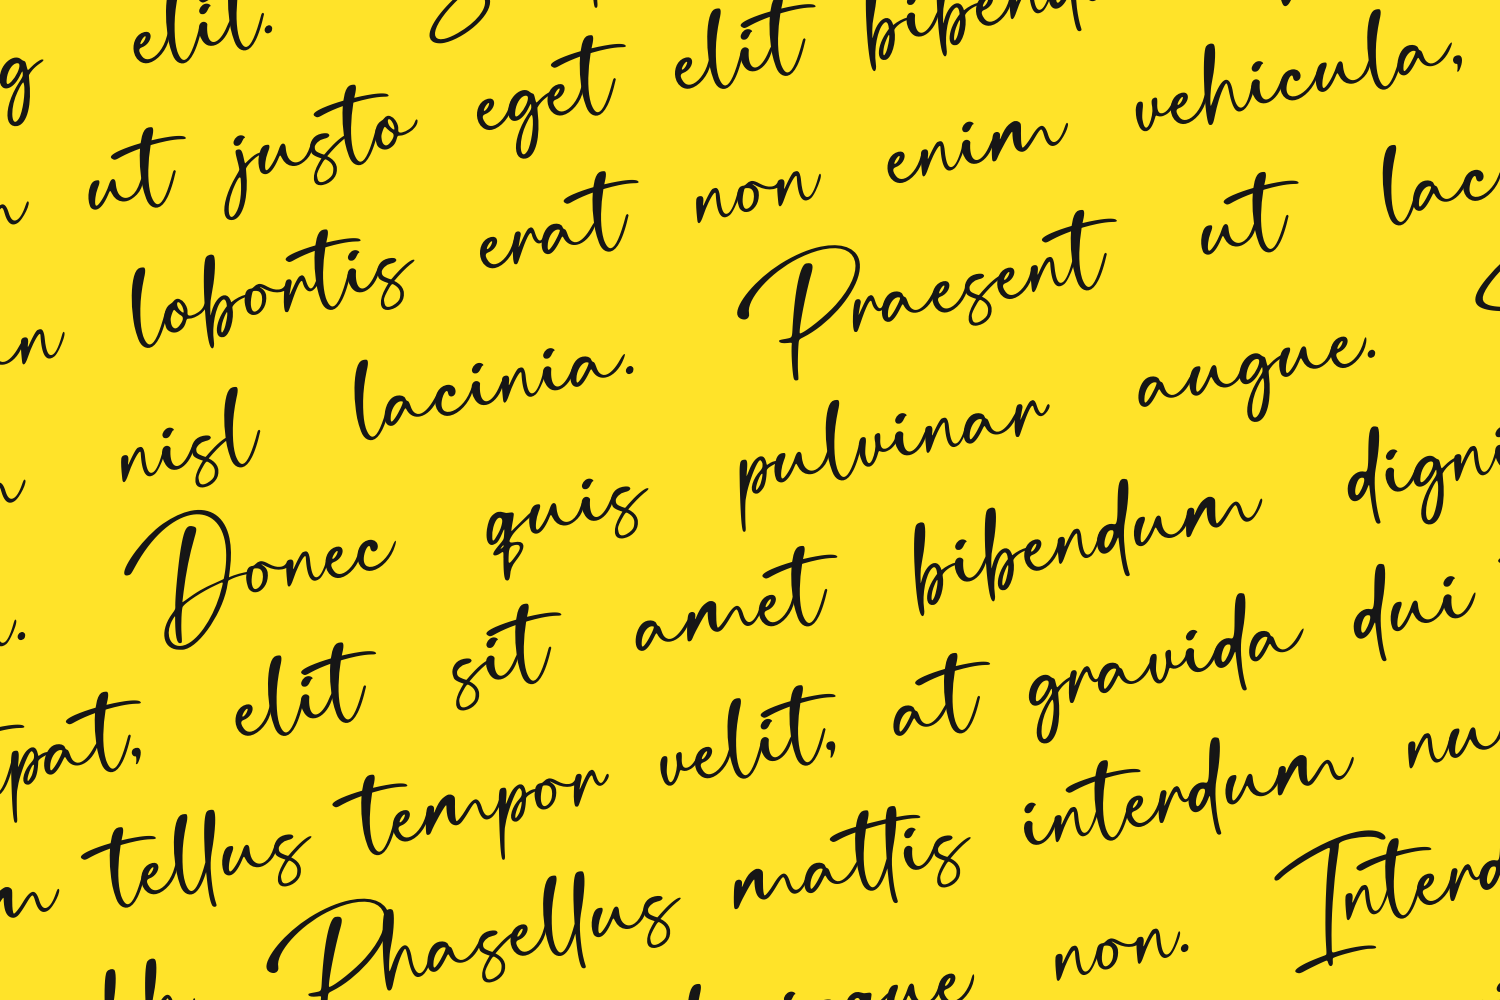 g elit.
ut justo eget elit bibend
lobortis erat non enim vehicula,
nisl lacinia. Praesent ut lac
Donec quis pulvinar augue.
pat, elit sit amet bibendum digni
tellus tempor velit, at gravida dui
Phasellus mattis interdum nu
non. Interd